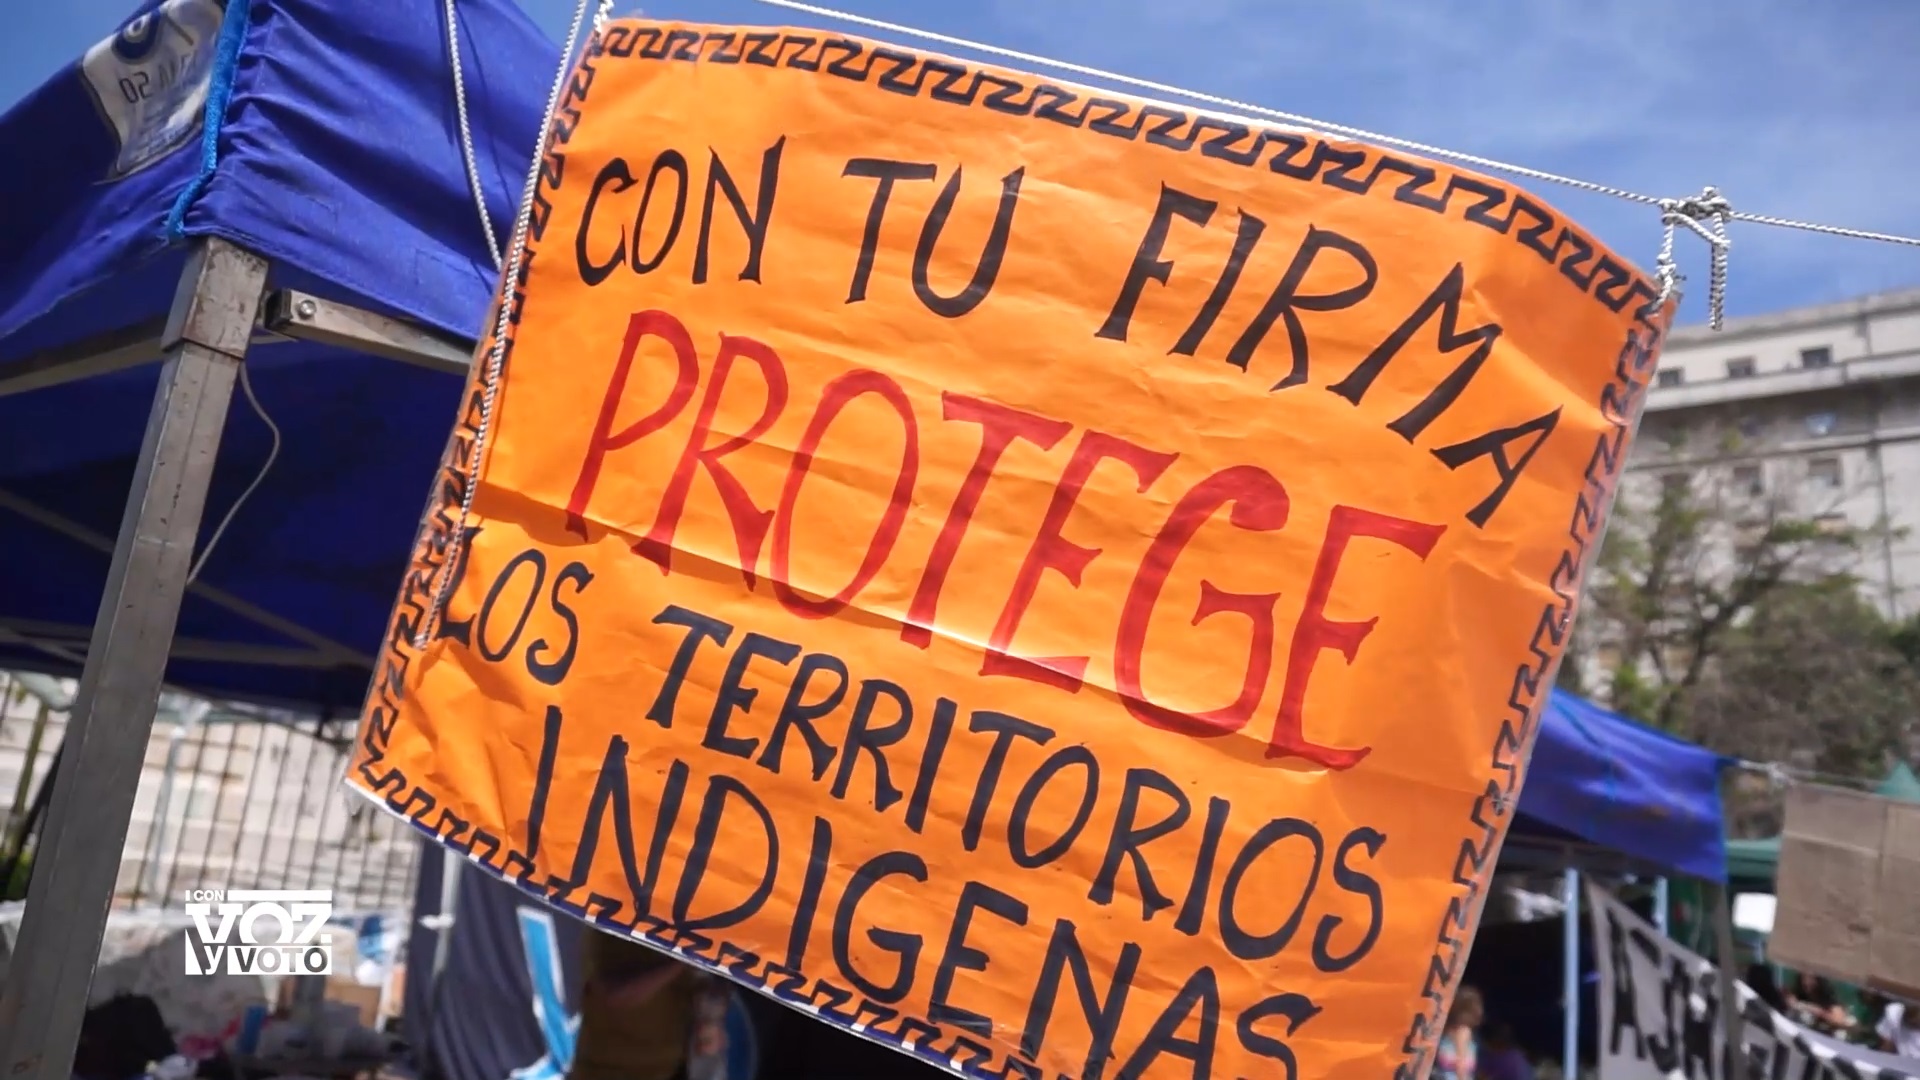 CON TU FIRMA
PROTEGE
LOS TERRITORIOS
INDIGENAS
CON
VOZ
y VOTO